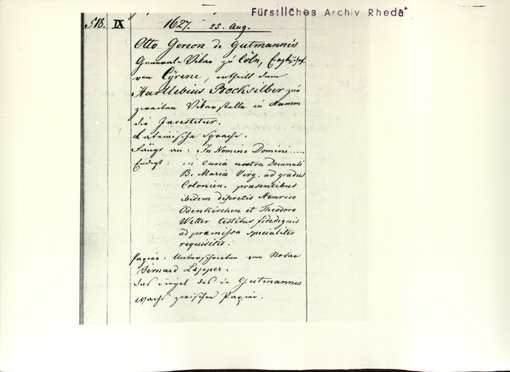 Fürstliches Archiv Rheda
518. IX 1627. 25. Aug.
Otto Gereon de Gutmannis
General-Vikar zu Cöln, Erzbischof
von Cyrene, ertheilt dem
Hartlebius Bocksilber zur
zweiten Vikarstelle in Hamm
die Investitur.
Lateinische Sprache.
Fängt an: In Nomine Domini....
Endigt: in curia nostra Decanali
B. Mariae Virg. ad gradus
Colonien. praesentibus
ibidem discretis Henrico
Odenkirchen et Theodoro
Welter testibus fidedignis
ad praemissa specialiter
requisitis.
Papier. Unterschrieben vom Notar
Bernard Lapper.
Das Siegel des de Gutmannis
Wachs zwischen Papier.